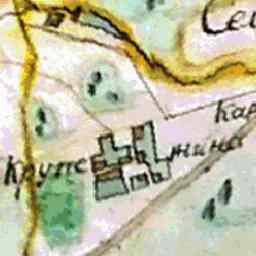 Сел
Кар
Крупе
нина